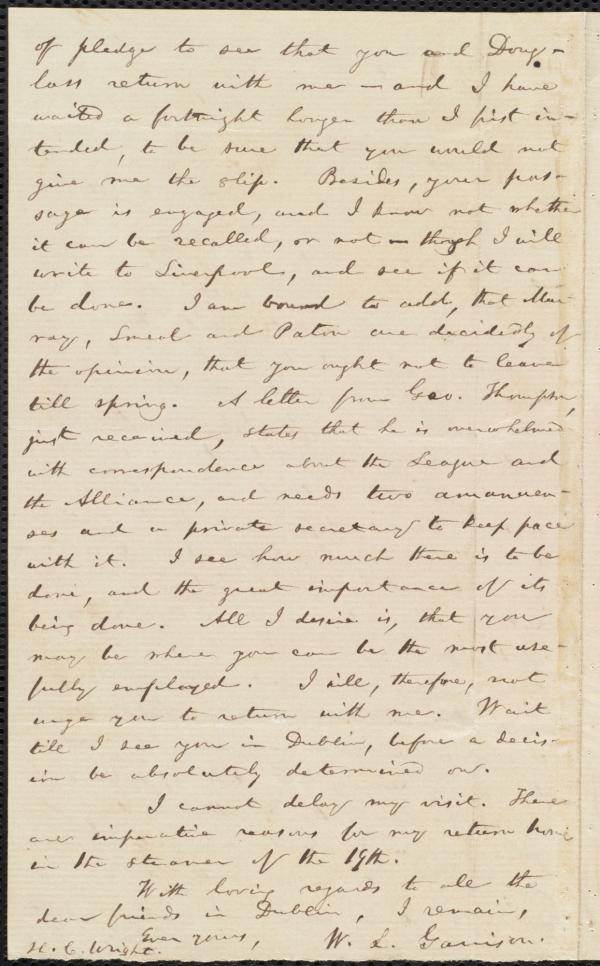 of pledge to see that you and Doug-
lass return with me — and I have
waited a fortnight longer than I first in-
tended, to be sure that you would not
give me the slip. Besides, your pas-
sage is engaged, and I know not whether
it can be recalled, or not — though I will
write to Liverpool, and see if it can
be done. I am bound to add, that Mur-
ray, Smeal and Paton are decidedly of
the opinion, that you ought not to leave
till spring. A letter from Geo. Thompson,
just received, states that he is overwhelmed
with correspondence about the League and
the Alliance, and needs two amanuen-
ses and a private secretary to keep pace
with it. I see how much there is to be
done, and the great importance of its
being done. All I desire is, that you
may be where you can be the most use-
fully employed. I will, therefore, not
urge you to return with me. Wait
till I see you in Dublin, before a decis-
ion be absolutely determined on.
I cannot delay my visit. There
are imperative reasons for my return home
in the steamer of the 19th.
With loving regards to all the
dear friends in Dublin, I remain,
Ever yours, W. L. Garrison.
H. C. Wright.